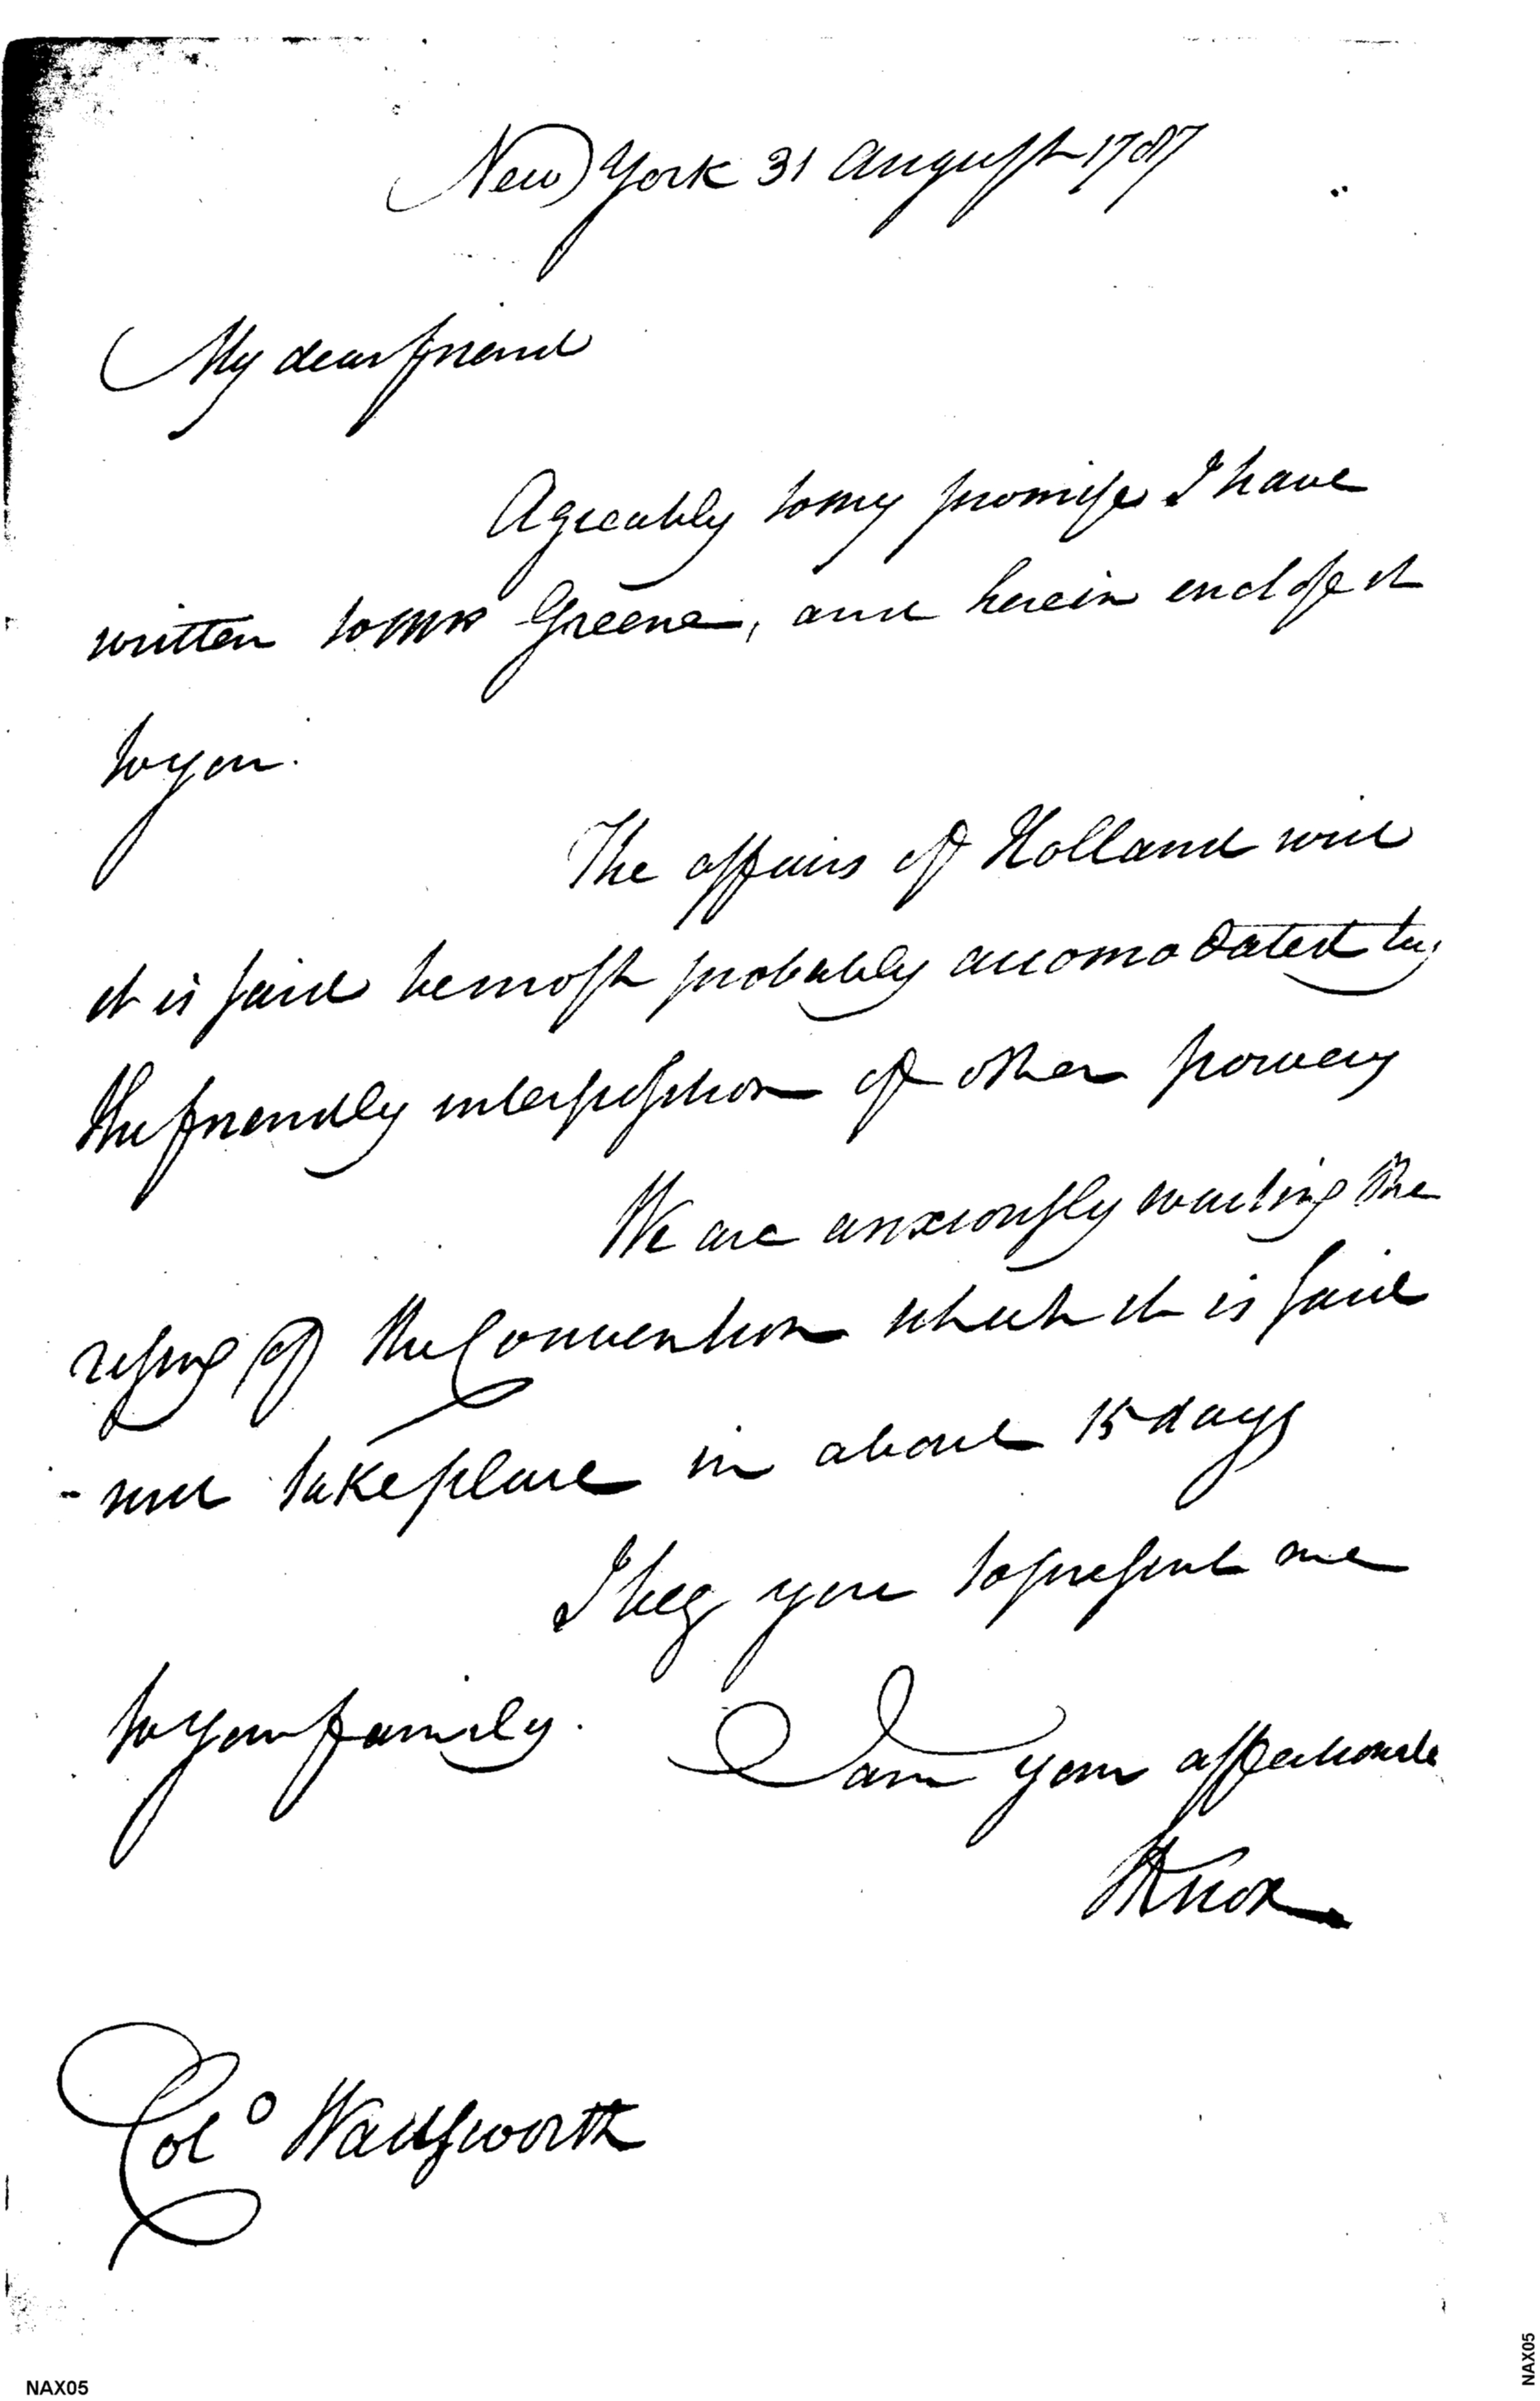 New York 31 August 1787
My dear friend
Agreeably to my promise I have
written to Mrs Greene, and herein enclose it
to you.
The affairs of Holland will
it is said be most probably accomodated by
the friendly interposition of other powers
We are anxiously waiting the
rising of the Convention which it is said
will take place in about 15 days
I beg you to present me
to your family. I am your affectionate
HKnox
Colo Wadsworth
NAX05
NAX05